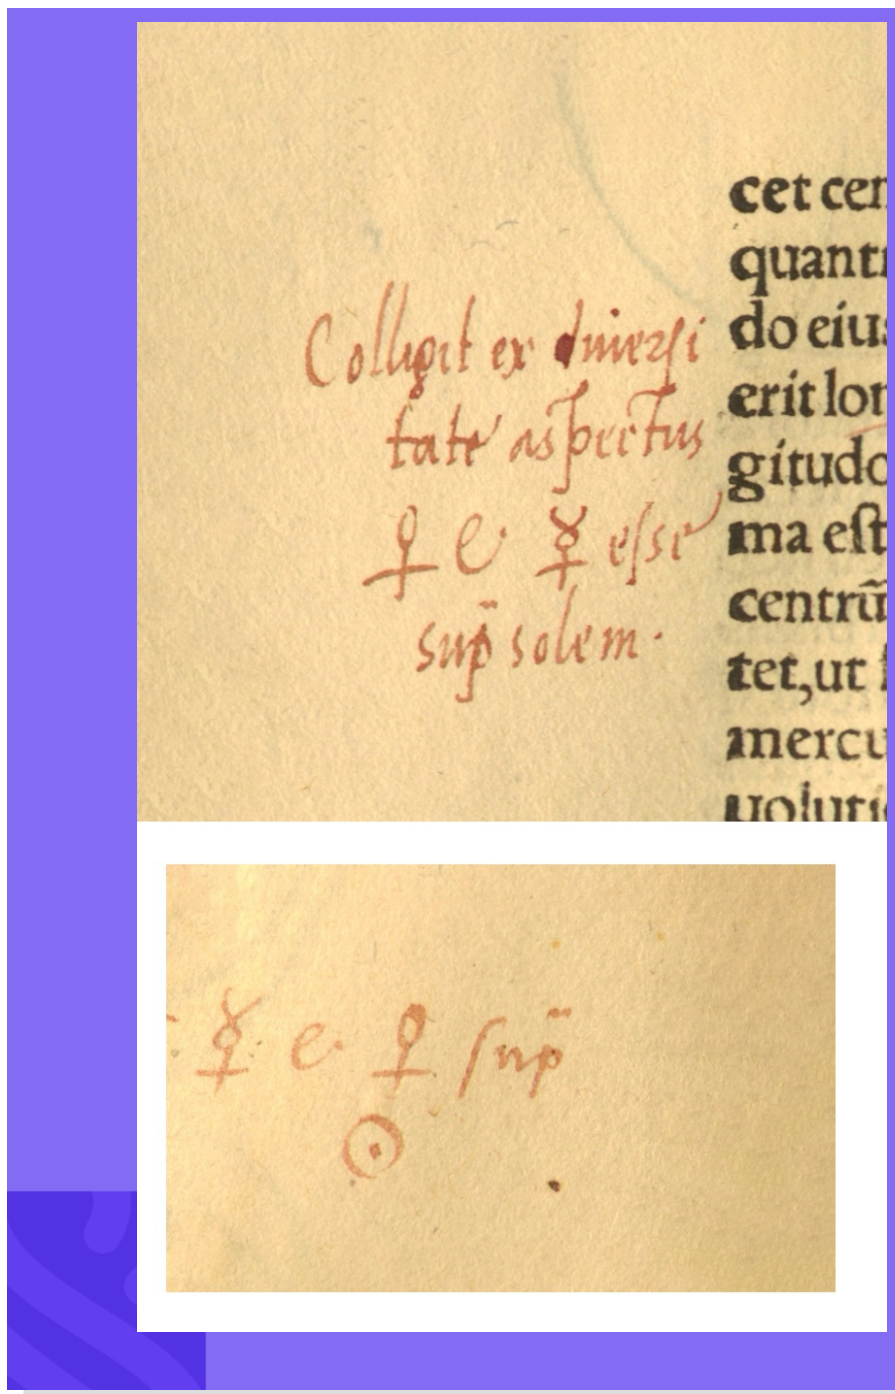 Colligit ex diuersi
tate aspectus
♀ & ☿ esse
sup̄ solem.
cet cen
quant
do eius
erit lon
gitudo
ma est
centrū
tet,ut
mercu
uoluti
☿ & ♀ sup̄
☉